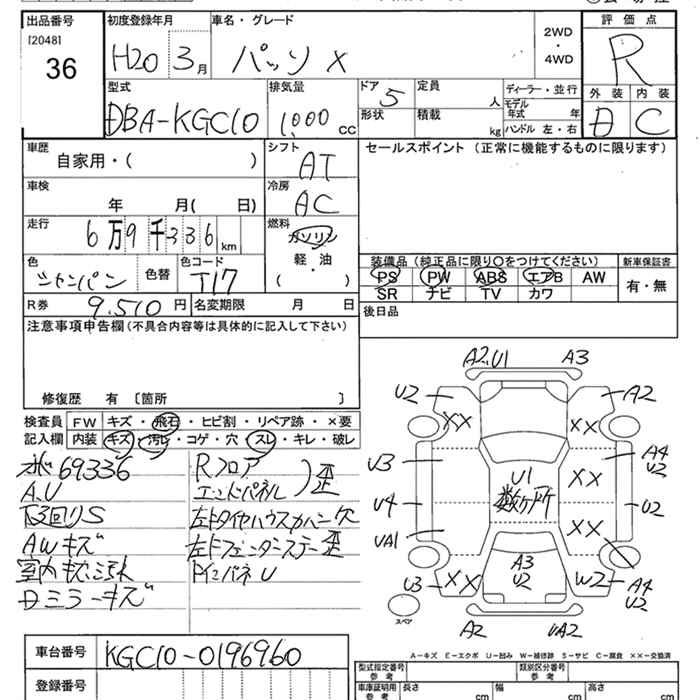 出品番号
[2048]
36
初度登録年月
H20 3月
車名・グレード
パッソ X
2WD
・
4WD
評価点
R
外装 内装
D C
型式
DBA-KGC10
排気量
1,000 CC
ドア
5
形状
定員
人
積載
kg
ディーラー・並行
モデル
年式 年
ハンドル 左・右
車歴
自家用・( )
シフト
AT
セールスポイント (正常に機能するものに限ります)
車検
年 月( 日)
冷房
AC
走行
6万9千336km
燃料
ガソリン
軽・油
( ・ )
色
シャンパン
色替
色コード
T17
装備品 (純正品に限り○をつけてください)
新車保証書
PS PW ABS エアB AW
SR ナビ TV カワ
有・無
R券
9,510円
名変期限 月 日
後日品
注意事項申告欄(不具合内容等は具体的に記入して下さい)
修復歴 有 〔箇所 〕
検査員
記入欄
FW キズ・飛石・ヒビ割・リペア跡・×要
内装 キズ・汚レ・コゲ・穴・スレ・キレ・破レ
69336
A.U
下回りS
AWキズ
室内キズ汚れ
Dミラーキズ
Rフロア
エンドパネル
)歪
左Fタイヤハウスカバー欠
左Fフェンダーステー歪
FインパネU
A2,U1
A3
U2
A2
XX
XX
U3
A4
U2
XX
U1
数ヶ所
U4
U2
UA1
XX
A3
U2
U3
XX
W2
A4
U2
スペア
A2
UA2
A-キズ E-エクボ U-凹み W-補修跡 S-サビ C-腐食 ××-交換済
車台番号
KGC10-0196960
登録番号
型式指定番号
参考
類別区分番号
参考
車庫証明用
参考
長さ
cm
幅
cm
高さ
cm